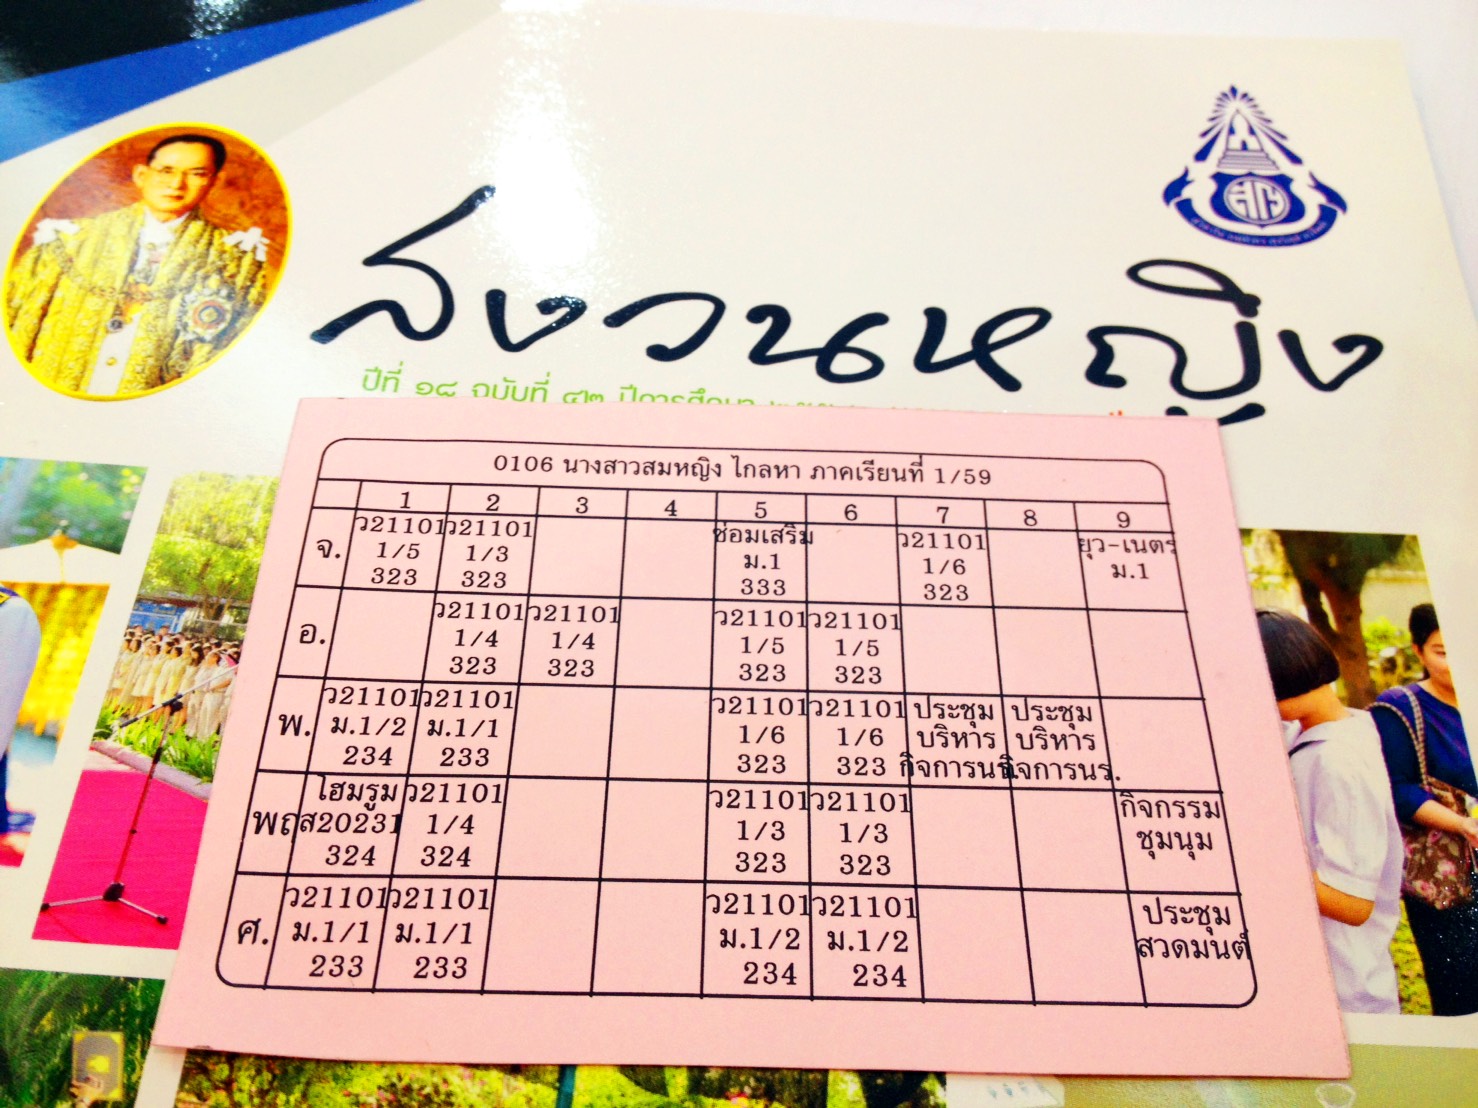 สงวนหญิง
ปีที่ ๑๘ ฉบับที่ ๔๒ ปีการศึกษา
0106 นางสาวสมหญิง ไกลหา ภาคเรียนที่ 1/59
1 2 3 4 5 6 7 8 9
จ. ว21101 ว21101 ซ่อมเสริม ว21101 ยุว-เนตร
1/5 1/3 ม.1 1/6 ม.1
323 323 333 323
อ. ว21101 ว21101 ว21101 ว21101
1/4 1/4 1/5 1/5
323 323 323 323
พ. ว21101 ว21101 ว21101 ว21101 ประชุม ประชุม
ม.1/2 ม.1/1 1/6 1/6 บริหาร บริหาร
234 233 323 323 กิจการนร. กิจการนร.
พฤ โฮมรูม ว21101 ว21101 ว21101 กิจกรรม
ส20231 1/4 1/3 1/3 ชุมนุม
324 324 323 323
ศ. ว21101 ว21101 ว21101 ว21101 ประชุม
ม.1/1 ม.1/1 ม.1/2 ม.1/2 สวดมนต์
233 233 234 234